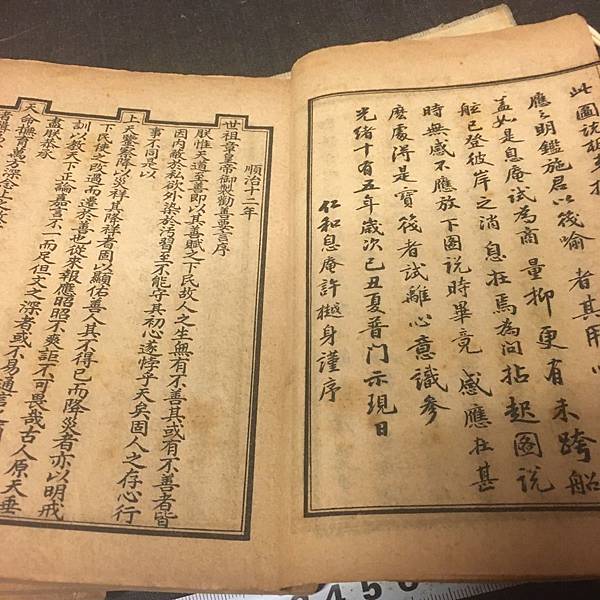 此圖說板
應之明鑑施君以筏喻者其用心
蓋如是息庵試為商量抑更有未跨船
舷已登彼岸之消息在焉為問拈起圖說
時無感不應放下圖說時畢竟感應在甚
麼處得是寶筏者試離心意識參
光緒十有五年歲次己丑夏普門示現日
仁和息庵許樾身謹序
順治十二年
世祖章皇帝御製勸善要言序
朕惟天道至善即以其善賦之下民故人之生無有不善其或有不善者皆
因內蔽於私欲外染於汚習至不能守其初心遂悖乎天矣固人之存心行
事不同是以
上天鑒察降以災祥其降祥者固以顯佑善人其不得已而降災者亦以明戒
下民使之改過而遷於善也從來報應昭昭不爽詎不可畏哉古人原天垂
訓以教天下正論嘉言不一而足但文之深者或不易通言
盡朕恭承
天命撫育萬方深念
4 5 6